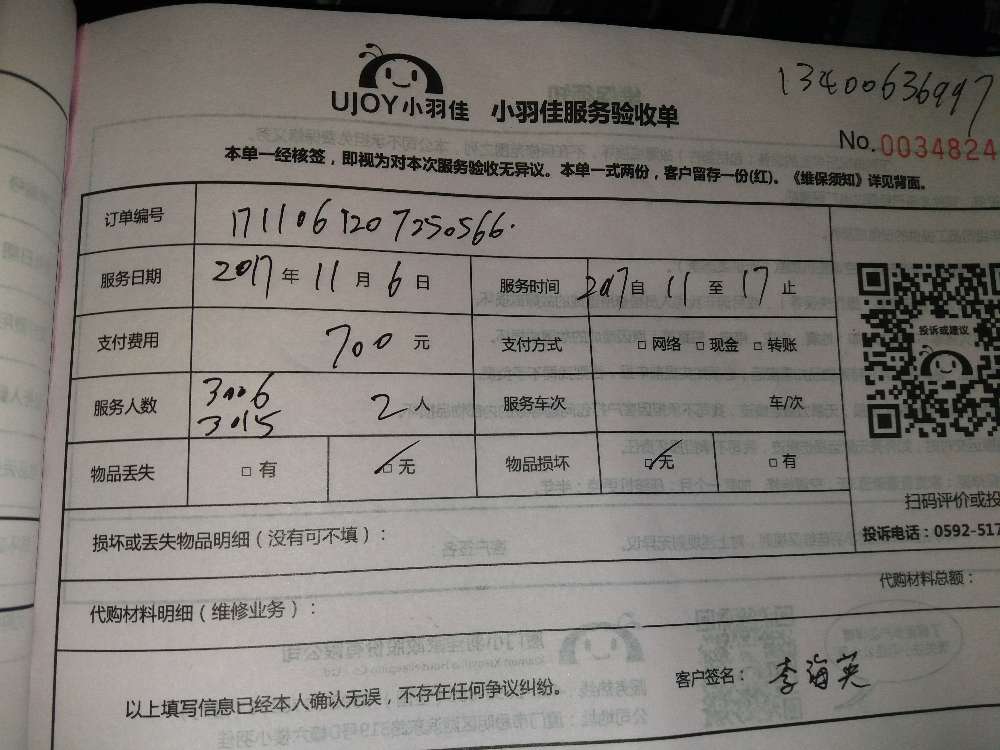 13400636997
UJOY小羽佳 小羽佳服务验收单
No.0034824
本单一经核签，即视为对本次服务验收无异议。本单一式两份，客户留存一份(红)。《维保须知》详见背面。
订单编号 1711061207250566.
服务日期 2017年11月6日 服务时间 2017自11至17止
支付费用 700元 支付方式 □网络 □现金 □转账
投诉或建议
服务人数 3006 3015 2人 服务车次 车/次
物品丢失 □有 ☑无 物品损坏 ☑无 □有
扫码评价或投
投诉电话：0592-517
损坏或丢失物品明细（没有可不填）：
代购材料明细（维修业务）： 代购材料总额：
以上填写信息已经本人确认无误，不存在任何争议纠纷。 客户签名：李海英